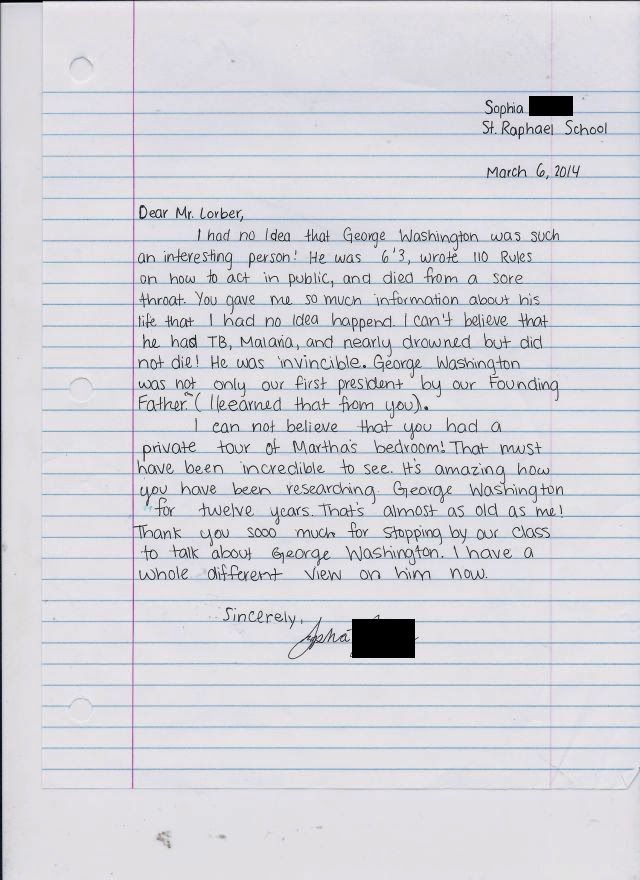 Sophia
St. Raphael School
March 6, 2014
Dear Mr. Lorber,
I had no Idea that George Washington was such
an interesting person! He was 6'3, wrote 110 Rules
on how to act in public, and died from a sore
throat. You gave me so much information about his
life that I had no Idea happend. I can't believe that
he had TB, Malaria, and nearly drowned but did
not die! He was invincible. George Washington
was not only our first president by our Founding
Father. (I leearned that from you).
I can not believe that you had a
private tour of Martha's bedroom! That must
have been incredible to see. It's amazing how
you have been researching George Washington
for twelve years. That's almost as old as me!
Thank you sooo much for stopping by our class
to talk about George Washington. I have a
whole different view on him now.
Sincerely,
Sophia